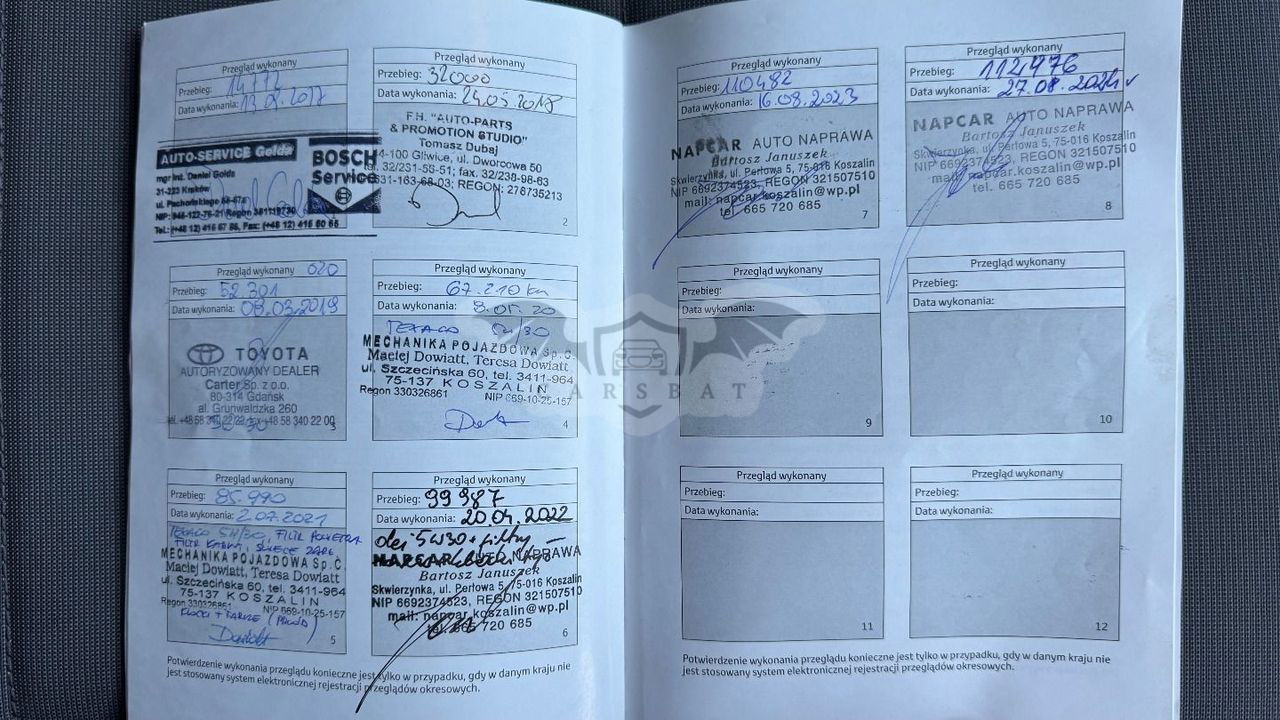 Przegląd wykonany
Przebieg: 14772
Data wykonania: 2017
AUTO-SERVICE Golda
mgr inż. Daniel Golda
31-223 Kraków
ul. Pachońskiego
Regon
BOSCH
Service
Przegląd wykonany
Przebieg: 32000
Data wykonania: 24.05.2018
F.H. "AUTO-PARTS
& PROMOTION STUDIO"
Tomasz Dubaj
44-100 Gliwice, ul. Dworcowa 50
tel. 32/231-58-51; fax. 32/238-96-63
631-163-68-03; REGON: 276735213
2
Przegląd wykonany
Przebieg: 52.301
Data wykonania: 08.03.2019
TOYOTA
AUTORYZOWANY DEALER
Carter Sp. z o.o.
80-314 Gdańsk
al. Grunwaldzka 260
3
Przegląd wykonany
Przebieg: 67.210 km
Data wykonania: 8.01.20
TEXACO 5W/30
MECHANIKA POJAZDOWA Sp. C.
Maciej Dowiatt, Teresa Dowiatt
ul. Szczecińska 60, tel. 3411-964
75-137 KOSZALIN
Regon 330326861 NIP 669-10-25-157
4
Przegląd wykonany
Przebieg: 85.990
Data wykonania: 2.07.2021
TEXACO 5W/30, FILTR POWIETRZA
FILTR KABIN, ŚWIECE ZAPŁ.
MECHANIKA POJAZDOWA Sp. C.
Maciej Dowiatt, Teresa Dowiatt
ul. Szczecińska 60, tel. 3411-964
75-137 KOSZALIN
Regon 330326861 NIP 669-10-25-157
KLOCKI + TARCZE (PRZÓD)
5
Przegląd wykonany
Przebieg: 99987
Data wykonania: 20.04.2022
olej 5W30 + filtry
NAPCAR AUTO NAPRAWA
Bartosz Januszek
Skwierzynka, ul. Perłowa 5, 75-016 Koszalin
NIP 6692374523, REGON 321507510
mail: napcar.koszalin@wp.pl
tel. 665 720 685
6
Potwierdzenie wykonania przeglądu konieczne jest tylko w przypadku, gdy w danym kraju nie
jest stosowany system elektronicznej rejestracji przeglądów okresowych.
Przegląd wykonany
Przebieg: 110482
Data wykonania: 16.08.2023
NAPCAR AUTO NAPRAWA
Bartosz Januszek
Skwierzynka, ul. Perłowa 5, 75-016 Koszalin
NIP 6692374523, REGON 321507510
mail: napcar.koszalin@wp.pl
tel. 665 720 685
7
Przegląd wykonany
Przebieg: 112476
Data wykonania: 27.08.2024
NAPCAR AUTO NAPRAWA
Bartosz Januszek
Skwierzynka, ul. Perłowa 5, 75-016 Koszalin
NIP 6692374523, REGON 321507510
mail: napcar.koszalin@wp.pl
tel. 665 720 685
8
Przegląd wykonany
Przebieg:
Data wykonania:
9
Przegląd wykonany
Przebieg:
Data wykonania:
10
Przegląd wykonany
Przebieg:
Data wykonania:
11
Przegląd wykonany
Przebieg:
Data wykonania:
12
Potwierdzenie wykonania przeglądu konieczne jest tylko w przypadku, gdy w danym kraju nie
jest stosowany system elektronicznej rejestracji przeglądów okresowych.
ARSBAT